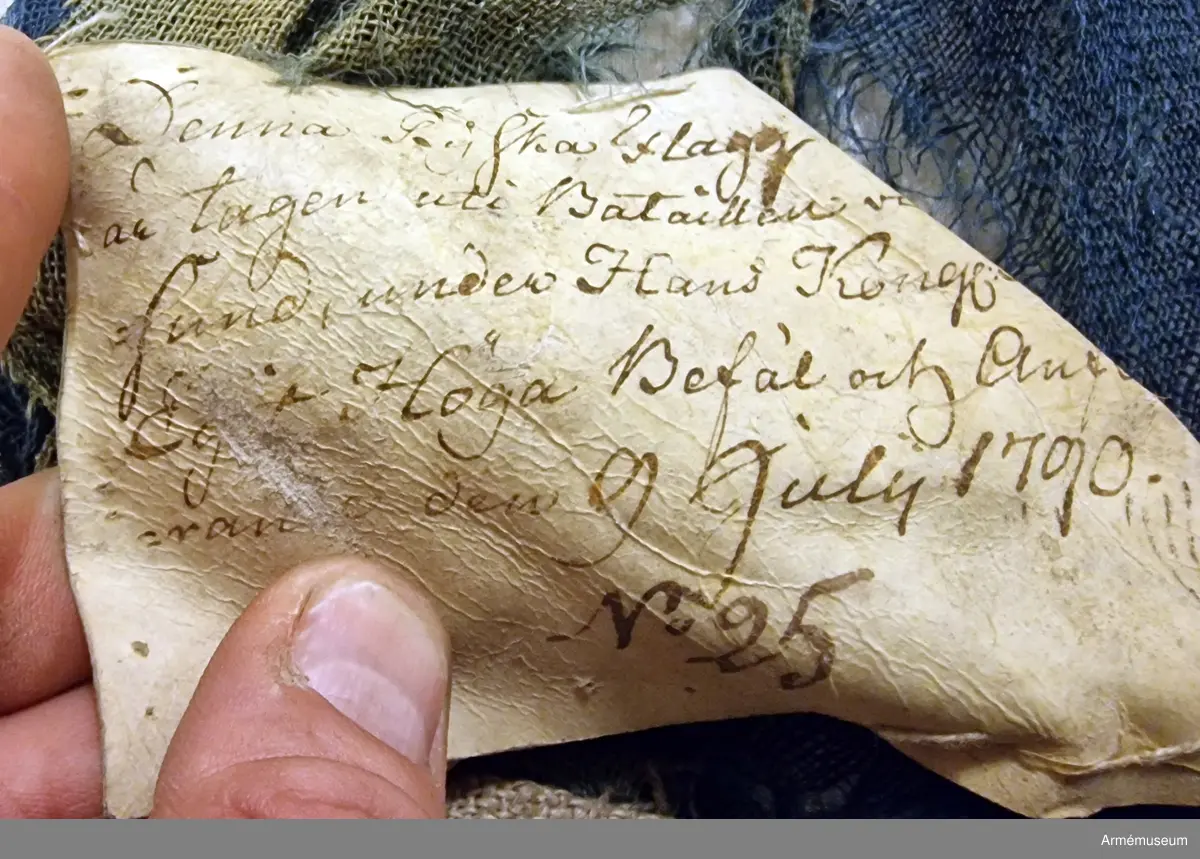 Denna Ryska Flagg
är tagen uti Batallien
=sund, under Hans Kongl:
Höga Befäl och Anf
den 9 Julij 1790.
No 25
Armémuseum